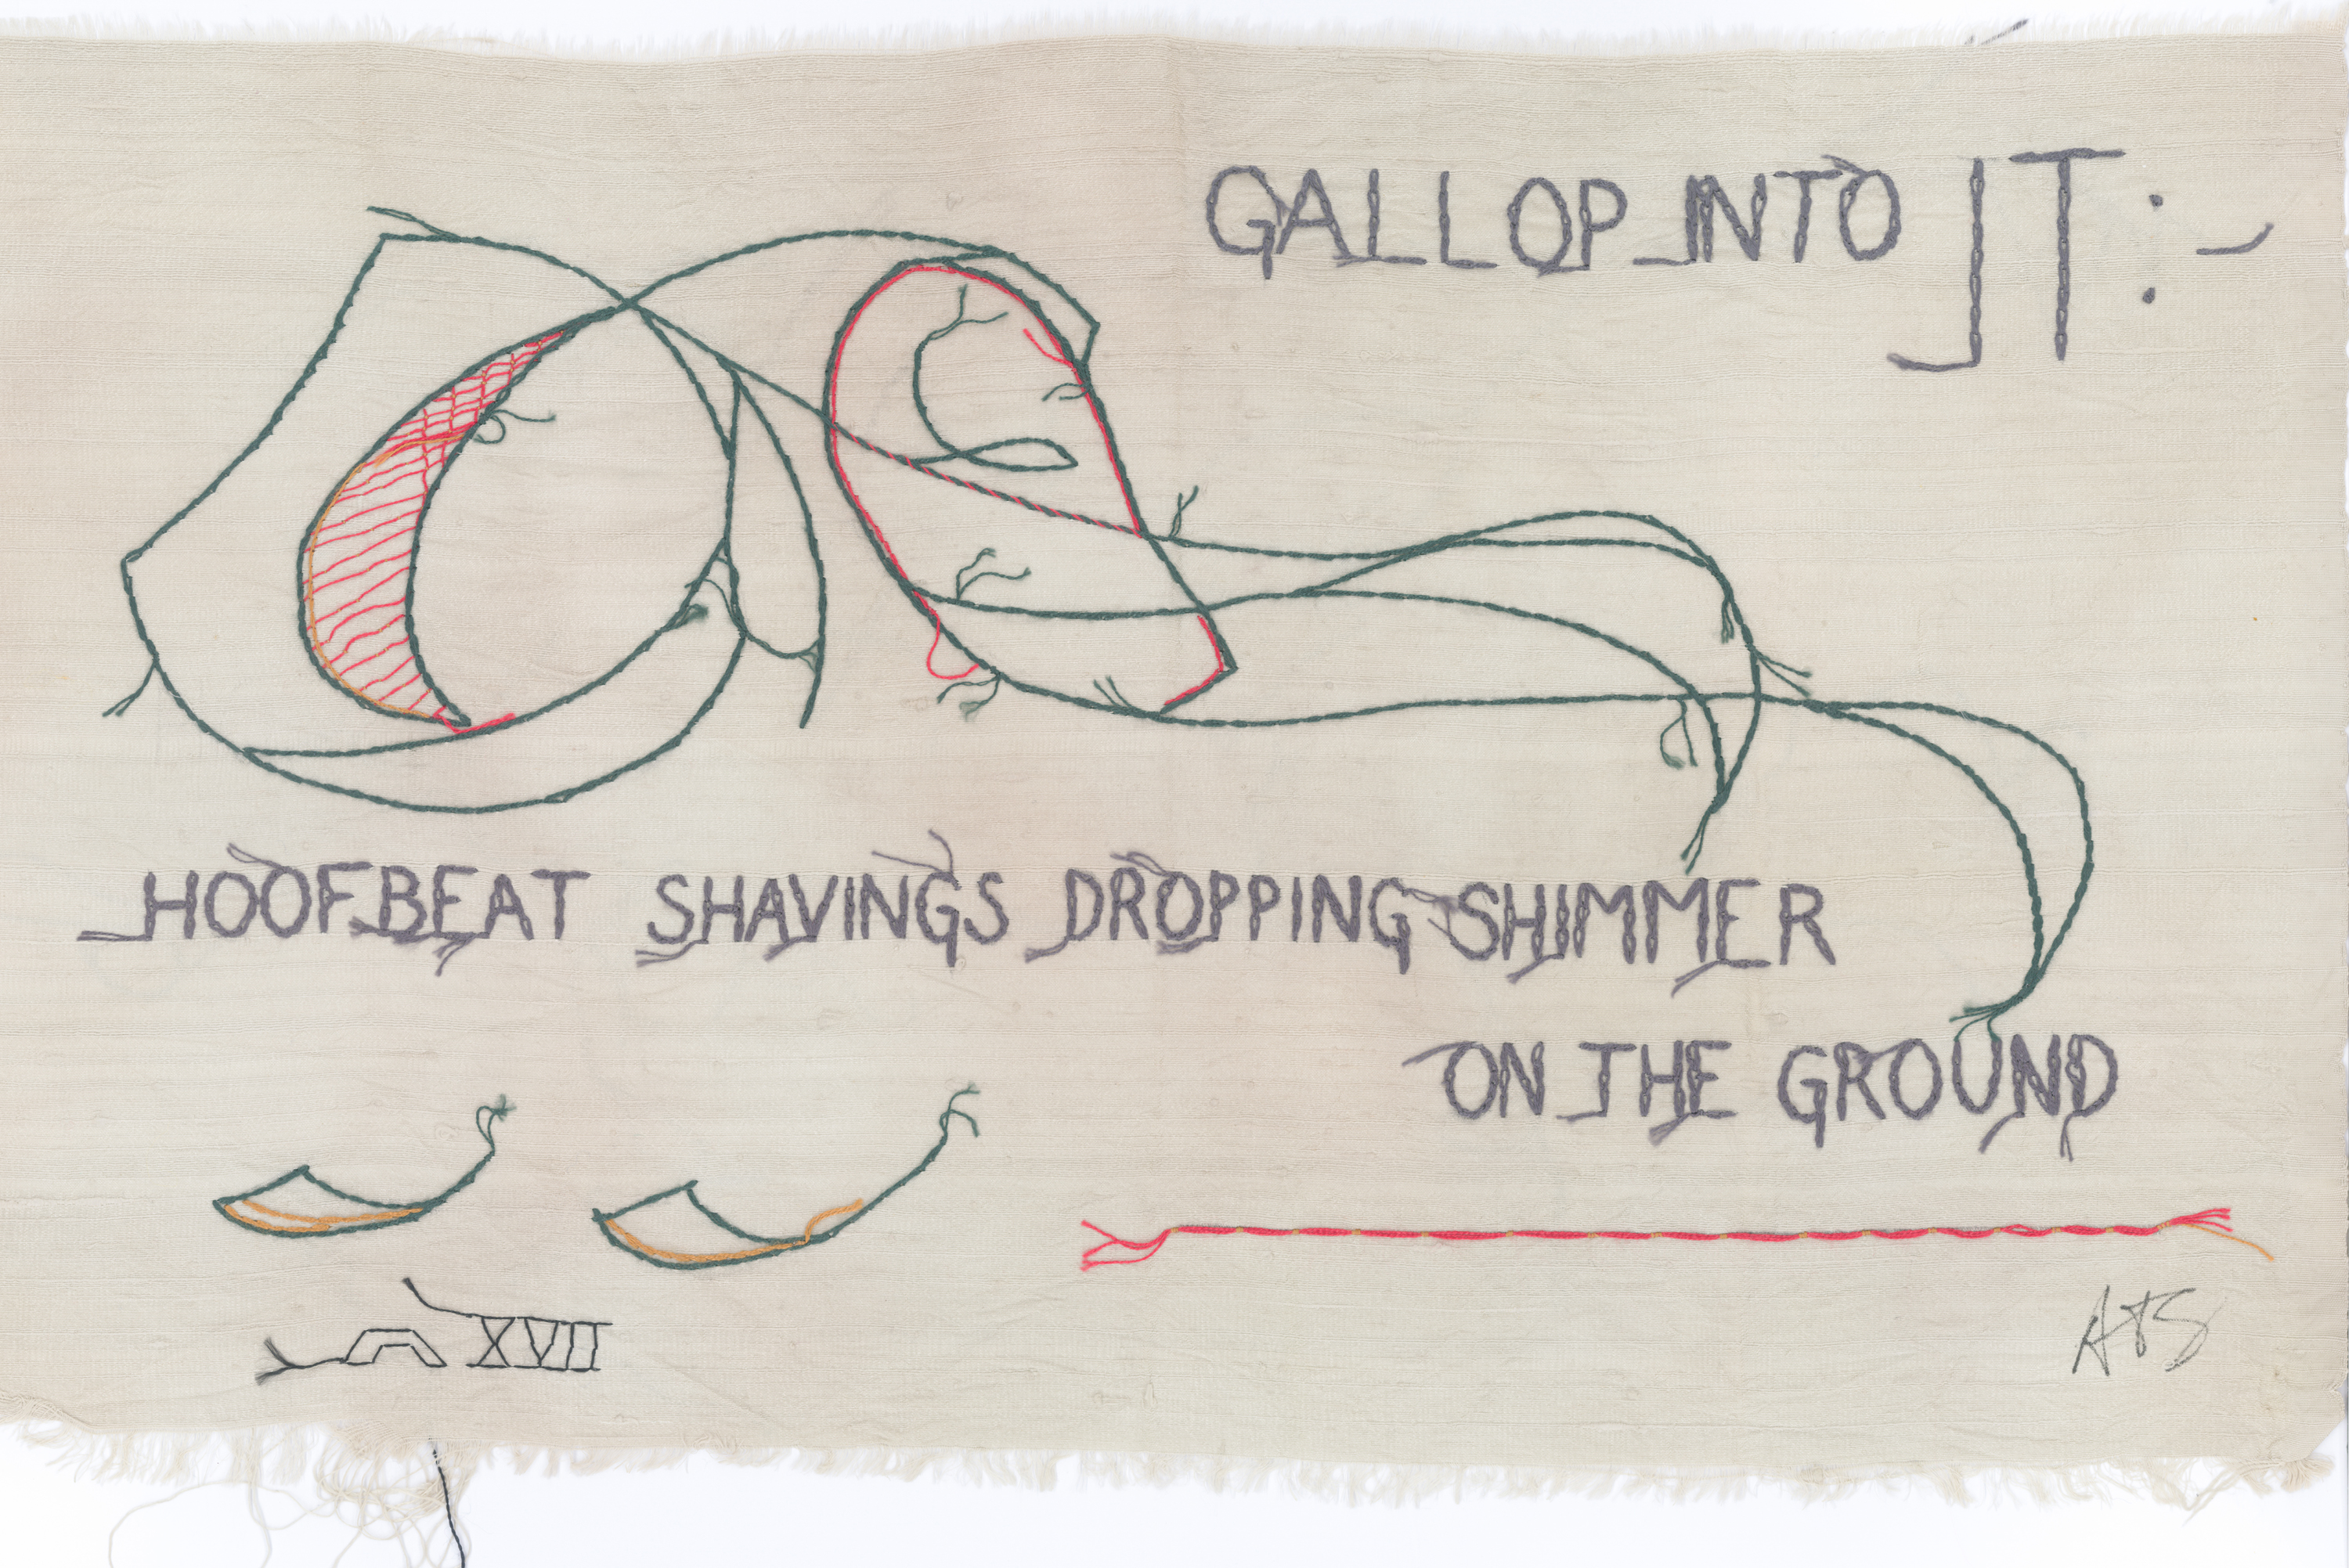 GALLOP INTO IT:-
HOOFBEAT SHAVINGS DROPPING SHIMMER
ON THE GROUND
XVII
ATS